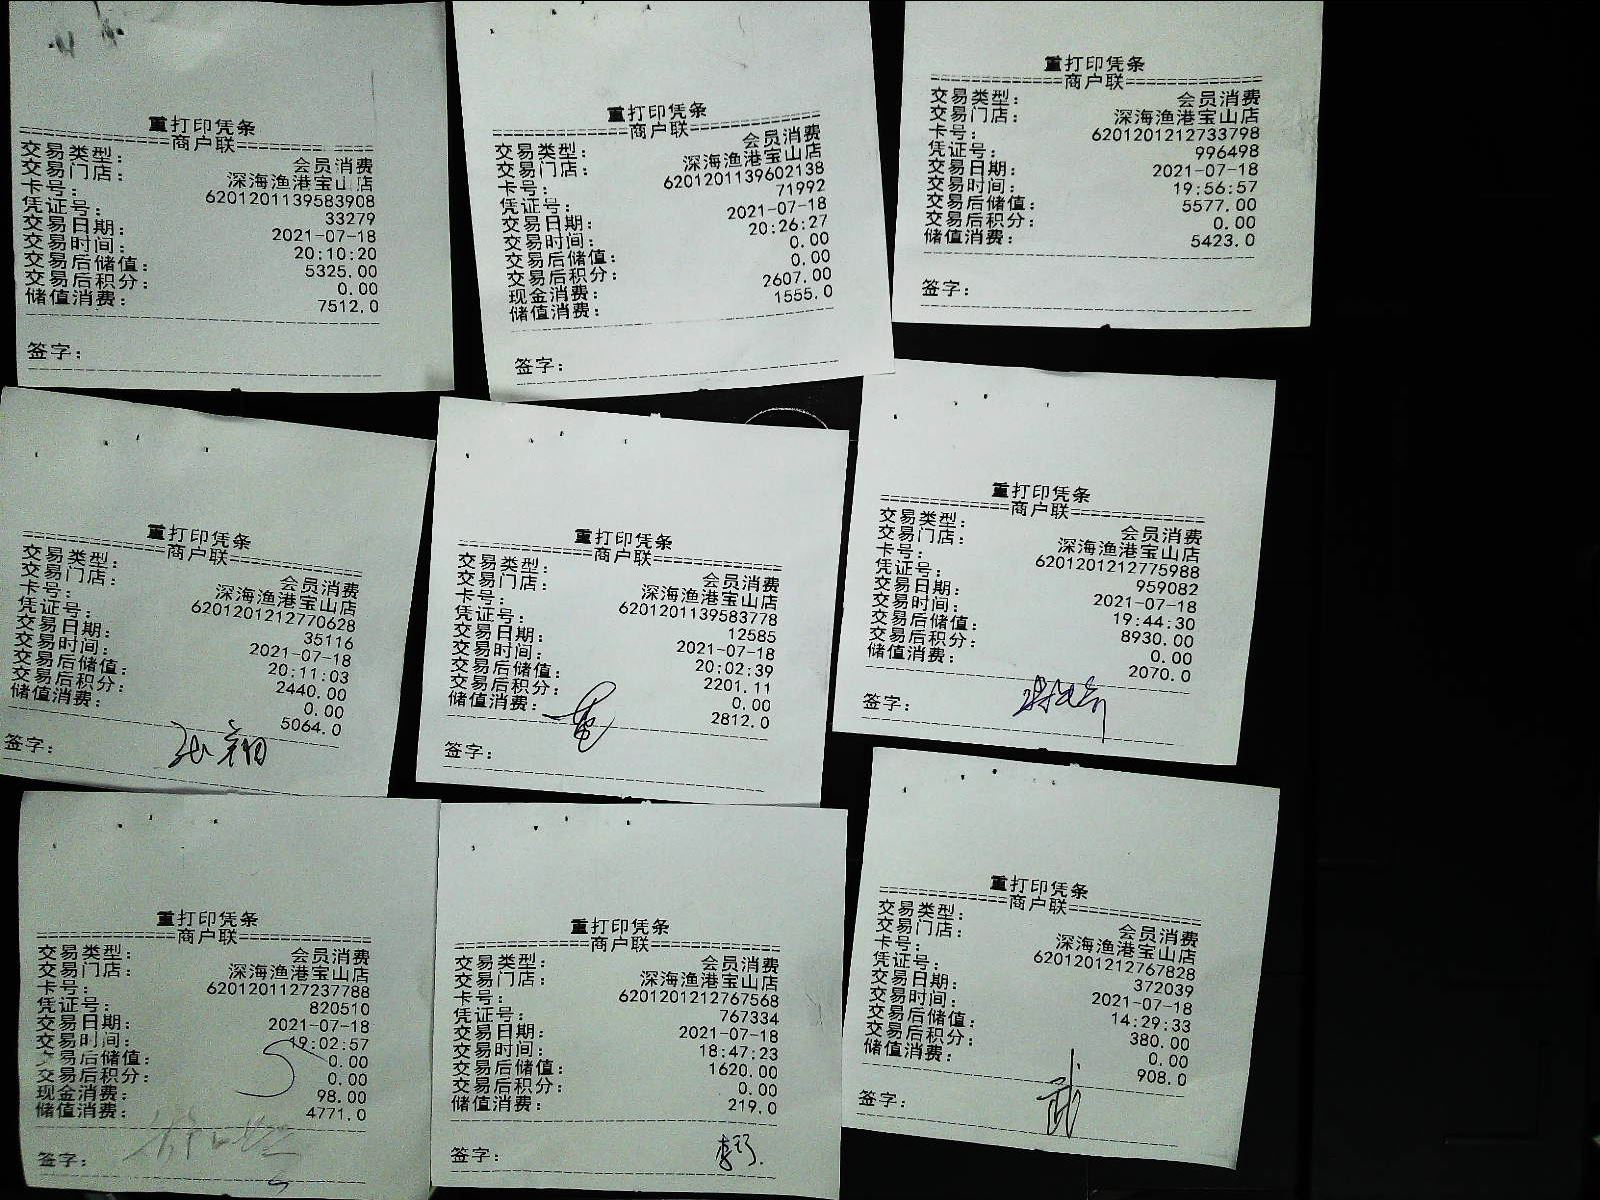 重打印凭条
商户联
交易类型： 会员消费
交易门店： 深海渔港宝山店
卡号： 6201201139583908
凭证号： 33279
交易日期： 2021-07-18
交易时间： 20:10:20
交易后储值： 5325.00
交易后积分： 0.00
储值消费： 7512.0
签字：
重打印凭条
商户联
交易类型： 会员消费
交易门店： 深海渔港宝山店
卡号： 6201201139602138
凭证号： 71992
交易日期： 2021-07-18
交易时间： 20:26:27
交易后储值： 0.00
交易后积分： 0.00
现金消费： 2607.00
储值消费： 1555.0
签字：
重打印凭条
商户联
交易类型： 会员消费
交易门店： 深海渔港宝山店
卡号： 6201201212733798
凭证号： 996498
交易日期： 2021-07-18
交易时间： 19:56:57
交易后储值： 5577.00
交易后积分： 0.00
储值消费： 5423.0
签字：
重打印凭条
商户联
交易类型： 会员消费
交易门店： 深海渔港宝山店
卡号： 6201201212770628
凭证号： 35116
交易日期： 2021-07-18
交易时间： 20:11:03
交易后储值： 2440.00
交易后积分： 0.00
储值消费： 5064.0
签字：
重打印凭条
商户联
交易类型： 会员消费
交易门店： 深海渔港宝山店
卡号： 6201201139583778
凭证号： 12585
交易日期： 2021-07-18
交易时间： 20:02:39
交易后储值： 2201.11
交易后积分： 0.00
储值消费： 2812.0
签字：
重打印凭条
商户联
交易类型： 会员消费
交易门店： 深海渔港宝山店
卡号： 6201201212775988
凭证号： 959082
交易日期： 2021-07-18
交易时间： 19:44:30
交易后储值： 8930.00
交易后积分： 0.00
储值消费： 2070.0
签字：
重打印凭条
商户联
交易类型： 会员消费
交易门店： 深海渔港宝山店
卡号： 6201201127237788
凭证号： 820510
交易日期： 2021-07-18
交易时间： 19:02:57
交易后储值： 0.00
交易后积分： 0.00
现金消费： 98.00
储值消费： 4771.0
签字：
重打印凭条
商户联
交易类型： 会员消费
交易门店： 深海渔港宝山店
卡号： 6201201212767568
凭证号： 767334
交易日期： 2021-07-18
交易时间： 18:47:23
交易后储值： 1620.00
交易后积分： 0.00
储值消费： 219.0
签字：
重打印凭条
商户联
交易类型： 会员消费
交易门店： 深海渔港宝山店
卡号： 6201201212767828
凭证号： 372039
交易日期： 2021-07-18
交易时间： 14:29:33
交易后储值： 380.00
交易后积分： 0.00
储值消费： 908.0
签字：